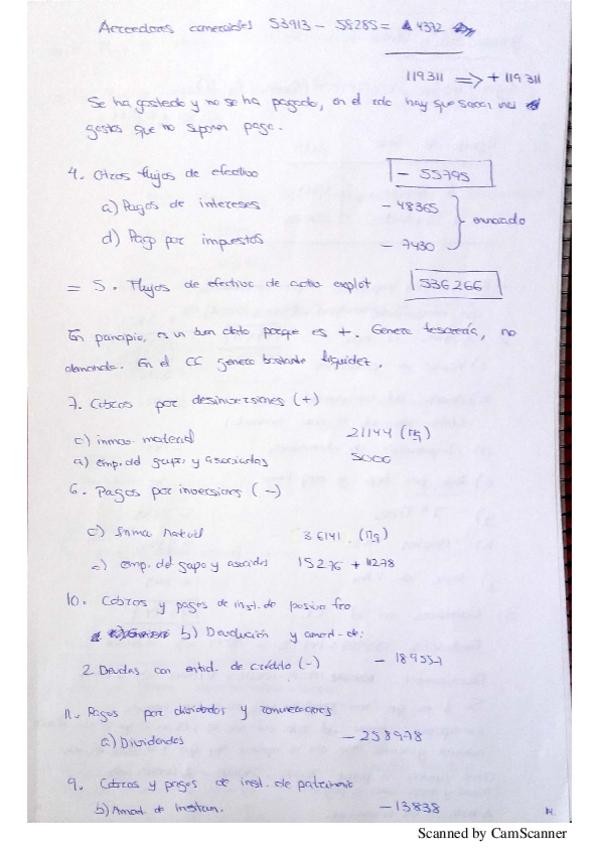 Acreedores comerciales 53913 - 58285 = 4372
119311 => + 119311
Se ha gastado y no se ha pagado, en el rdo hay que sacar
gastos que no suponen pago.
4. Otros flujos de efectivo - 55795
a) Pagos de intereses - 48365
d) Pago por impuestos - 7430
= 5. Flujos de efectivo de activ explot 536266
En principio, es un buen dato porque es +. Genera tesorería, no
demanda. En el CC genera bastante liquidez.
7. Cobros por desinversiones (+)
c) inmov. material 21144 (Mg)
a) emp. del grupo y asociadas 5000
6. Pagos por inversions (-)
c) Inmo Matrial 36141 (Mg)
a) emp. del grupo y asociadas 15276 + 11278
10. Cobros y pagos de inst. de pasivo fro
b) Devolución y amort. de:
2. Deudas con entid. de crédito (-) - 189557
11. Pagos por dividendos y remuneraciones
a) Dividendos - 258978
9. Cobros y pagos de inst. de patrimonio
b) Amort. de Instrum. - 13838
Scanned by CamScanner